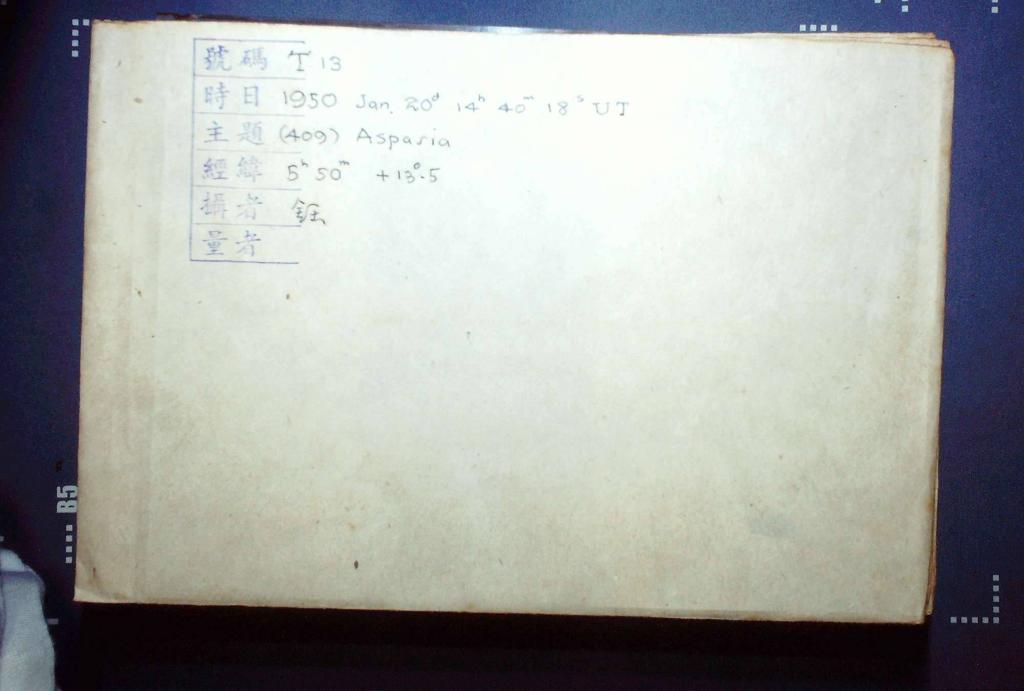 號碼 T 13
時日 1950 Jan. 20ᵈ 14ʰ 40ᵐ 18ˢ UT
主題 (409) Aspasia
經緯 5ʰ 50ᵐ +13°.5
攝者 鈺
量者
B5